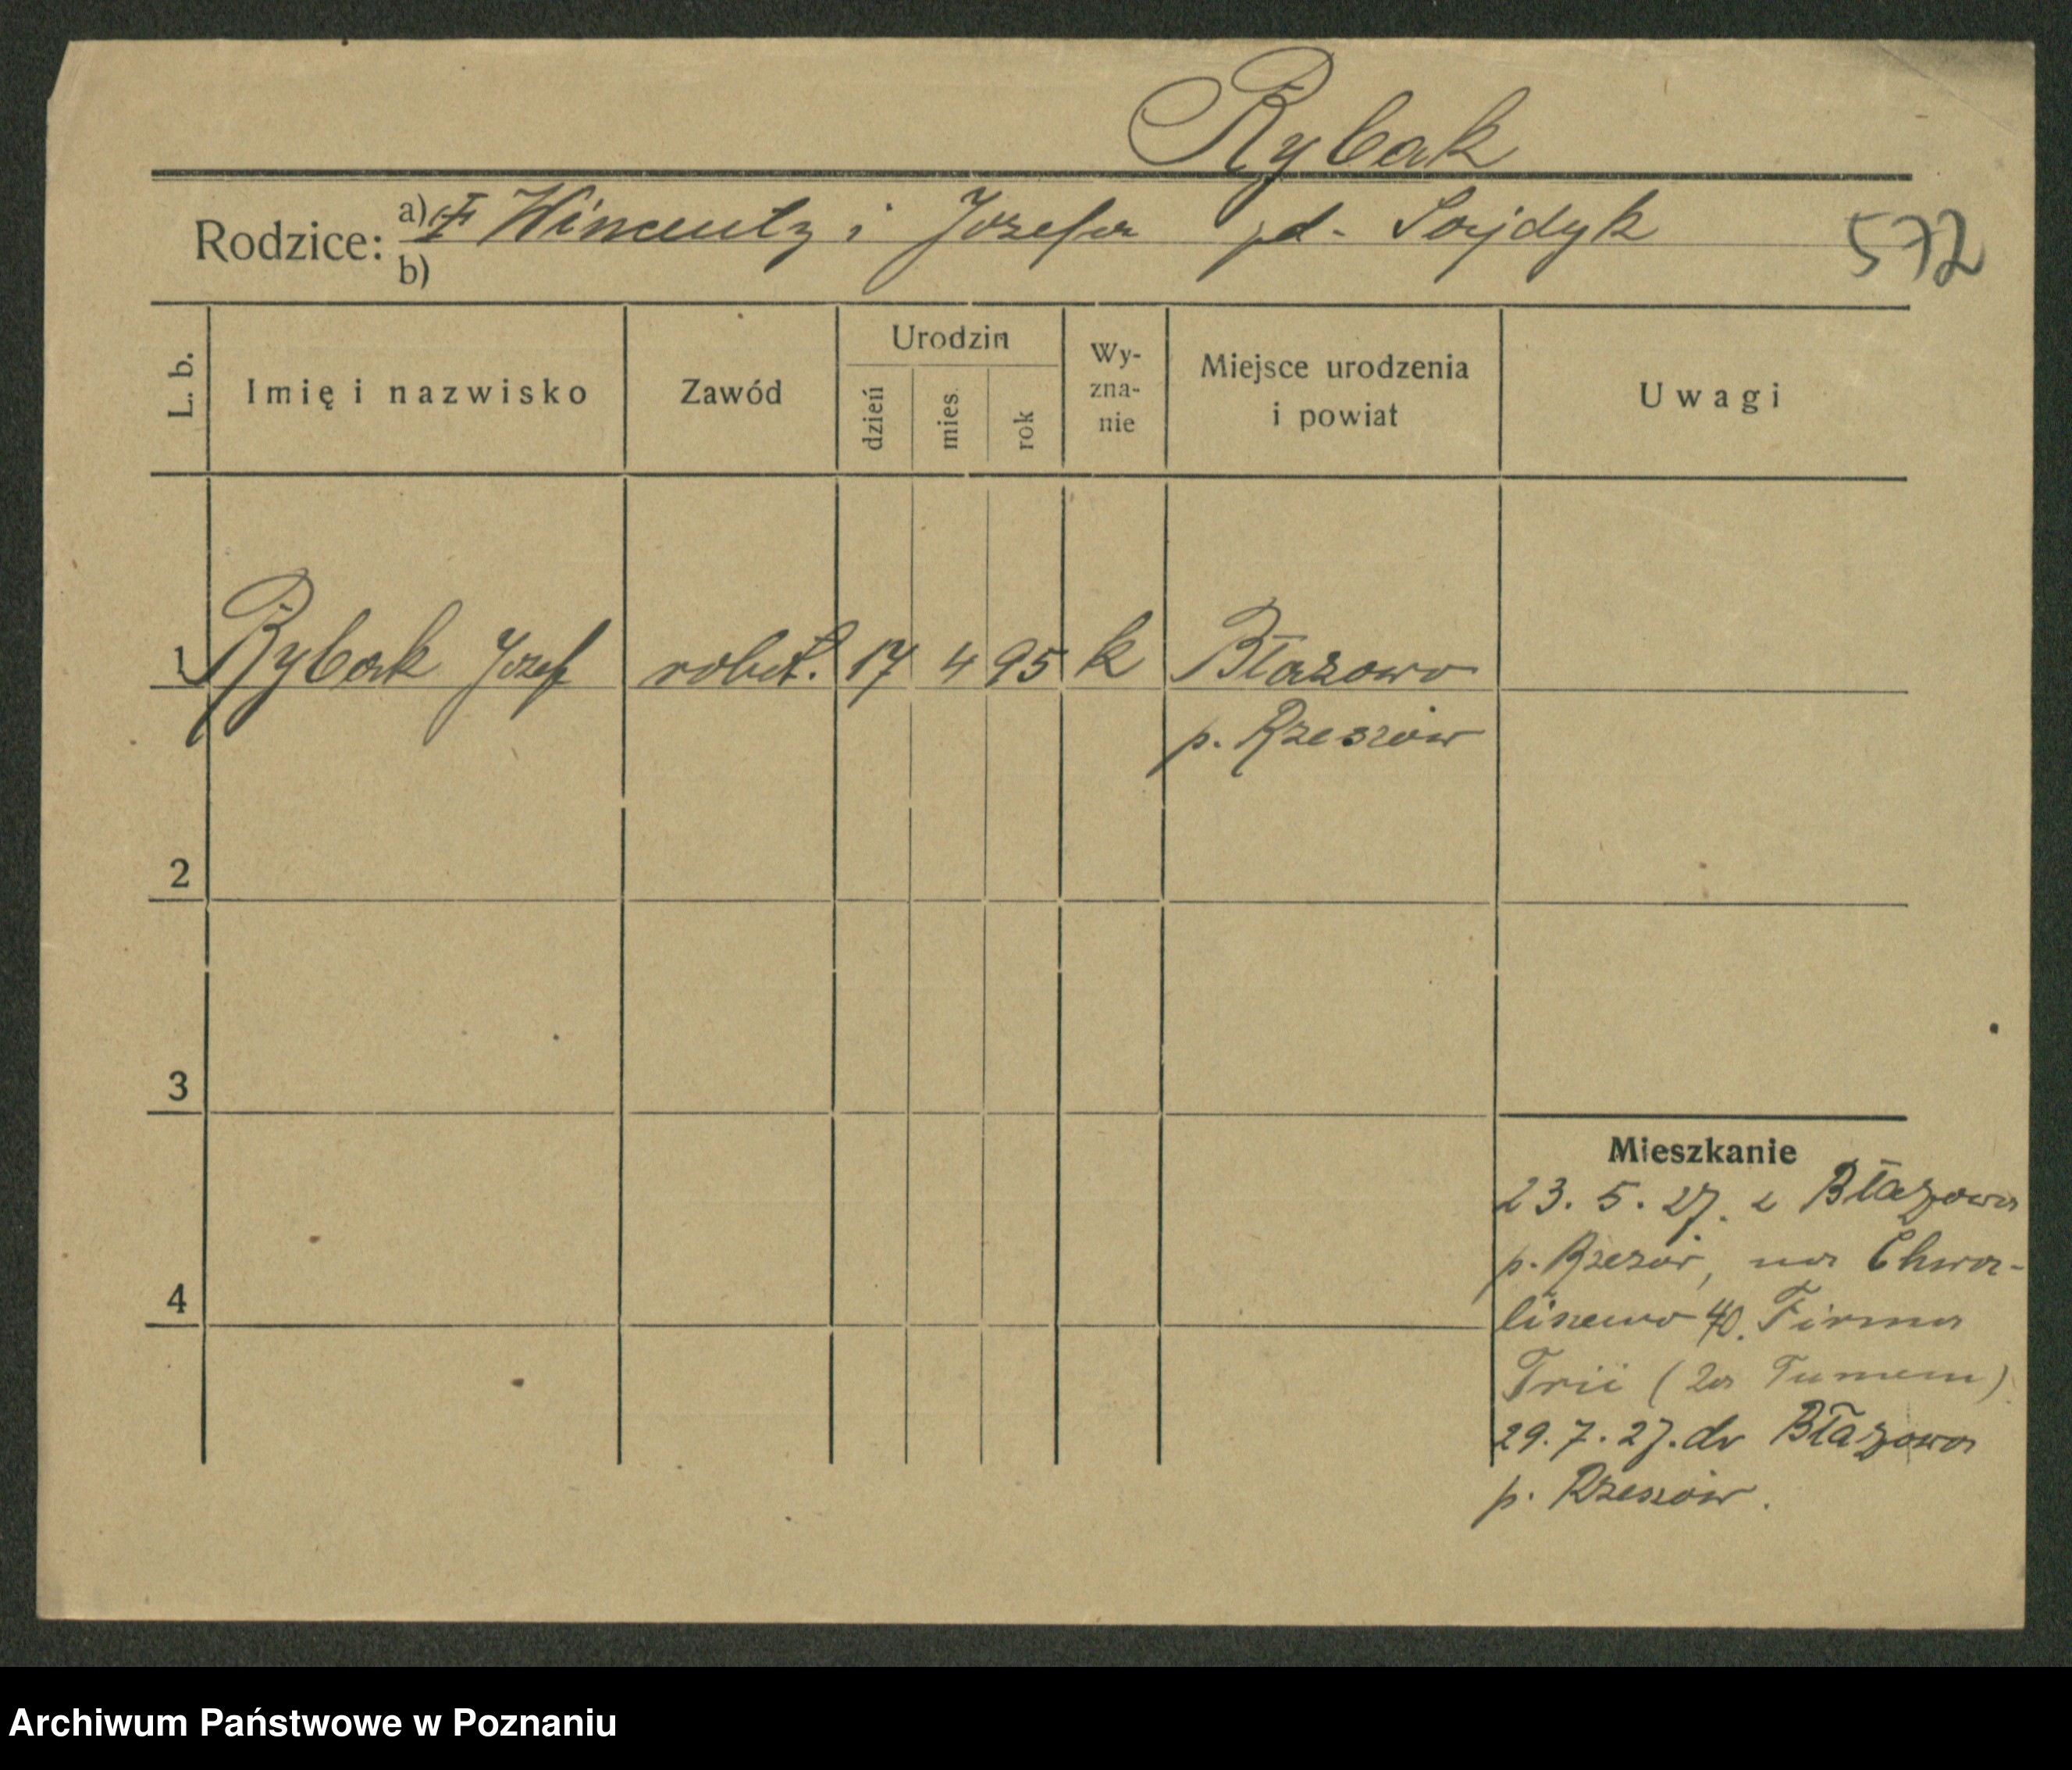 Rybak
Rodzice: a) Wincenty i Józefa pd. Sojdyk
572
b)
L. b. Imię i nazwisko Zawód Urodzin dzień mies. rok Wy-zna-nie Miejsce urodzenia i powiat Uwagi
1 Rybak Józef robot. 17 4 95 k Błazowo
p. Rzeszów
2
3
4
Mieszkanie
23. 5. 27. z Błazowa
p. Rzeszów, na Chwa-
liszewo 40. Firma
(Za Tumem)
29. 7. 27. do Błazowa
p. Rzeszów.
Archiwum Państwowe w Poznaniu